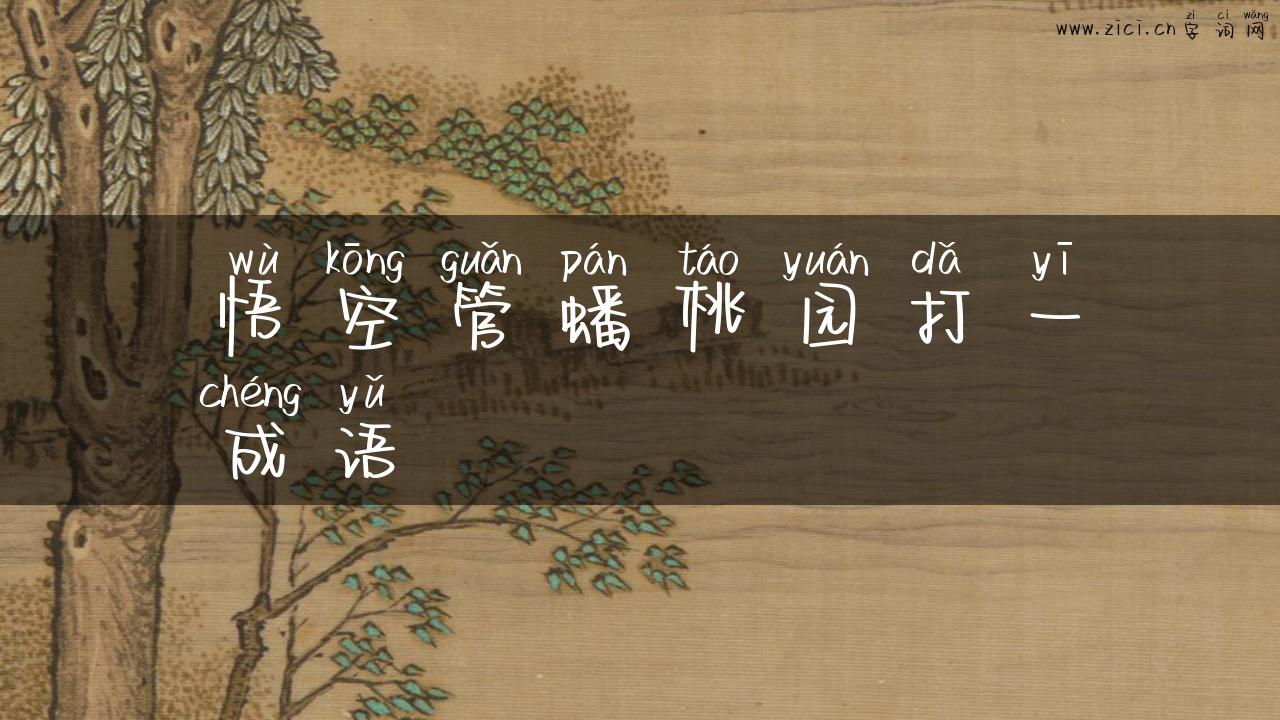 zì cí wǎng
www.zici.cn 字词网
wù kōng guǎn pán táo yuán dǎ yī
悟空管蟠桃园打一
chéng yǔ
成语